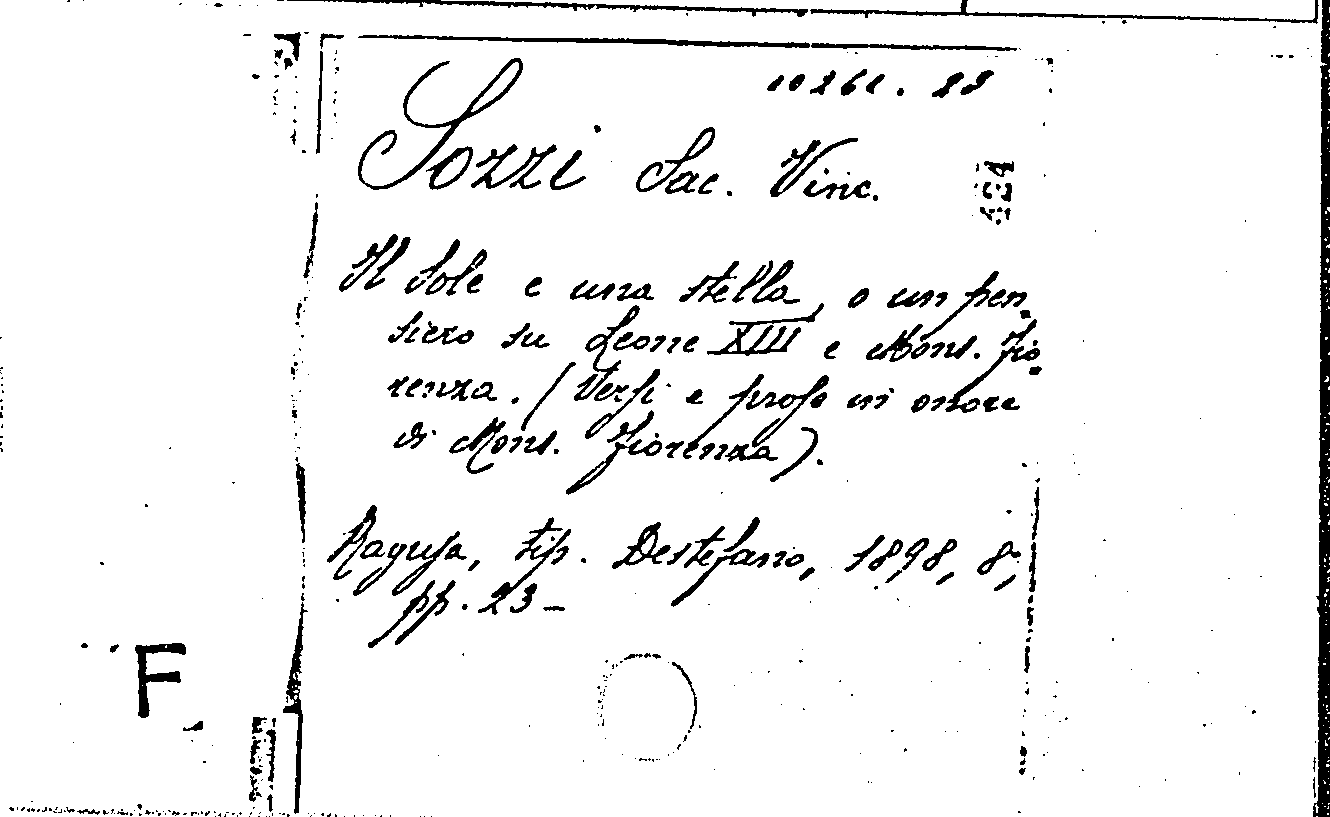 10261. 29
Sozzi Sac. Vinc.
424
Il Sole e una stella, o un pen-
siero su Leone XIII e Mons. Fio-
renza. (Versi e prose in onore
di Mons. Fiorenza).
Ragusa, tip. Destefano, 1898, 8°,
pp. 23 -
F